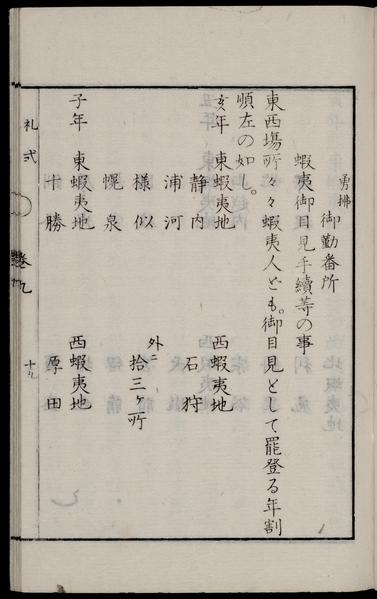 勇拂
御勤番所
蝦夷御目見手續等の事
東西塲所々々蝦夷人ども。御目見として罷登る年割
順左の如し。
亥年 東蝦夷地 西蝦夷地
静内 石狩
浦河 外ニ
様似 拾三ヶ所
幌泉
子年 東蝦夷地 西蝦夷地
十勝 厚田
礼式 巻九 十九